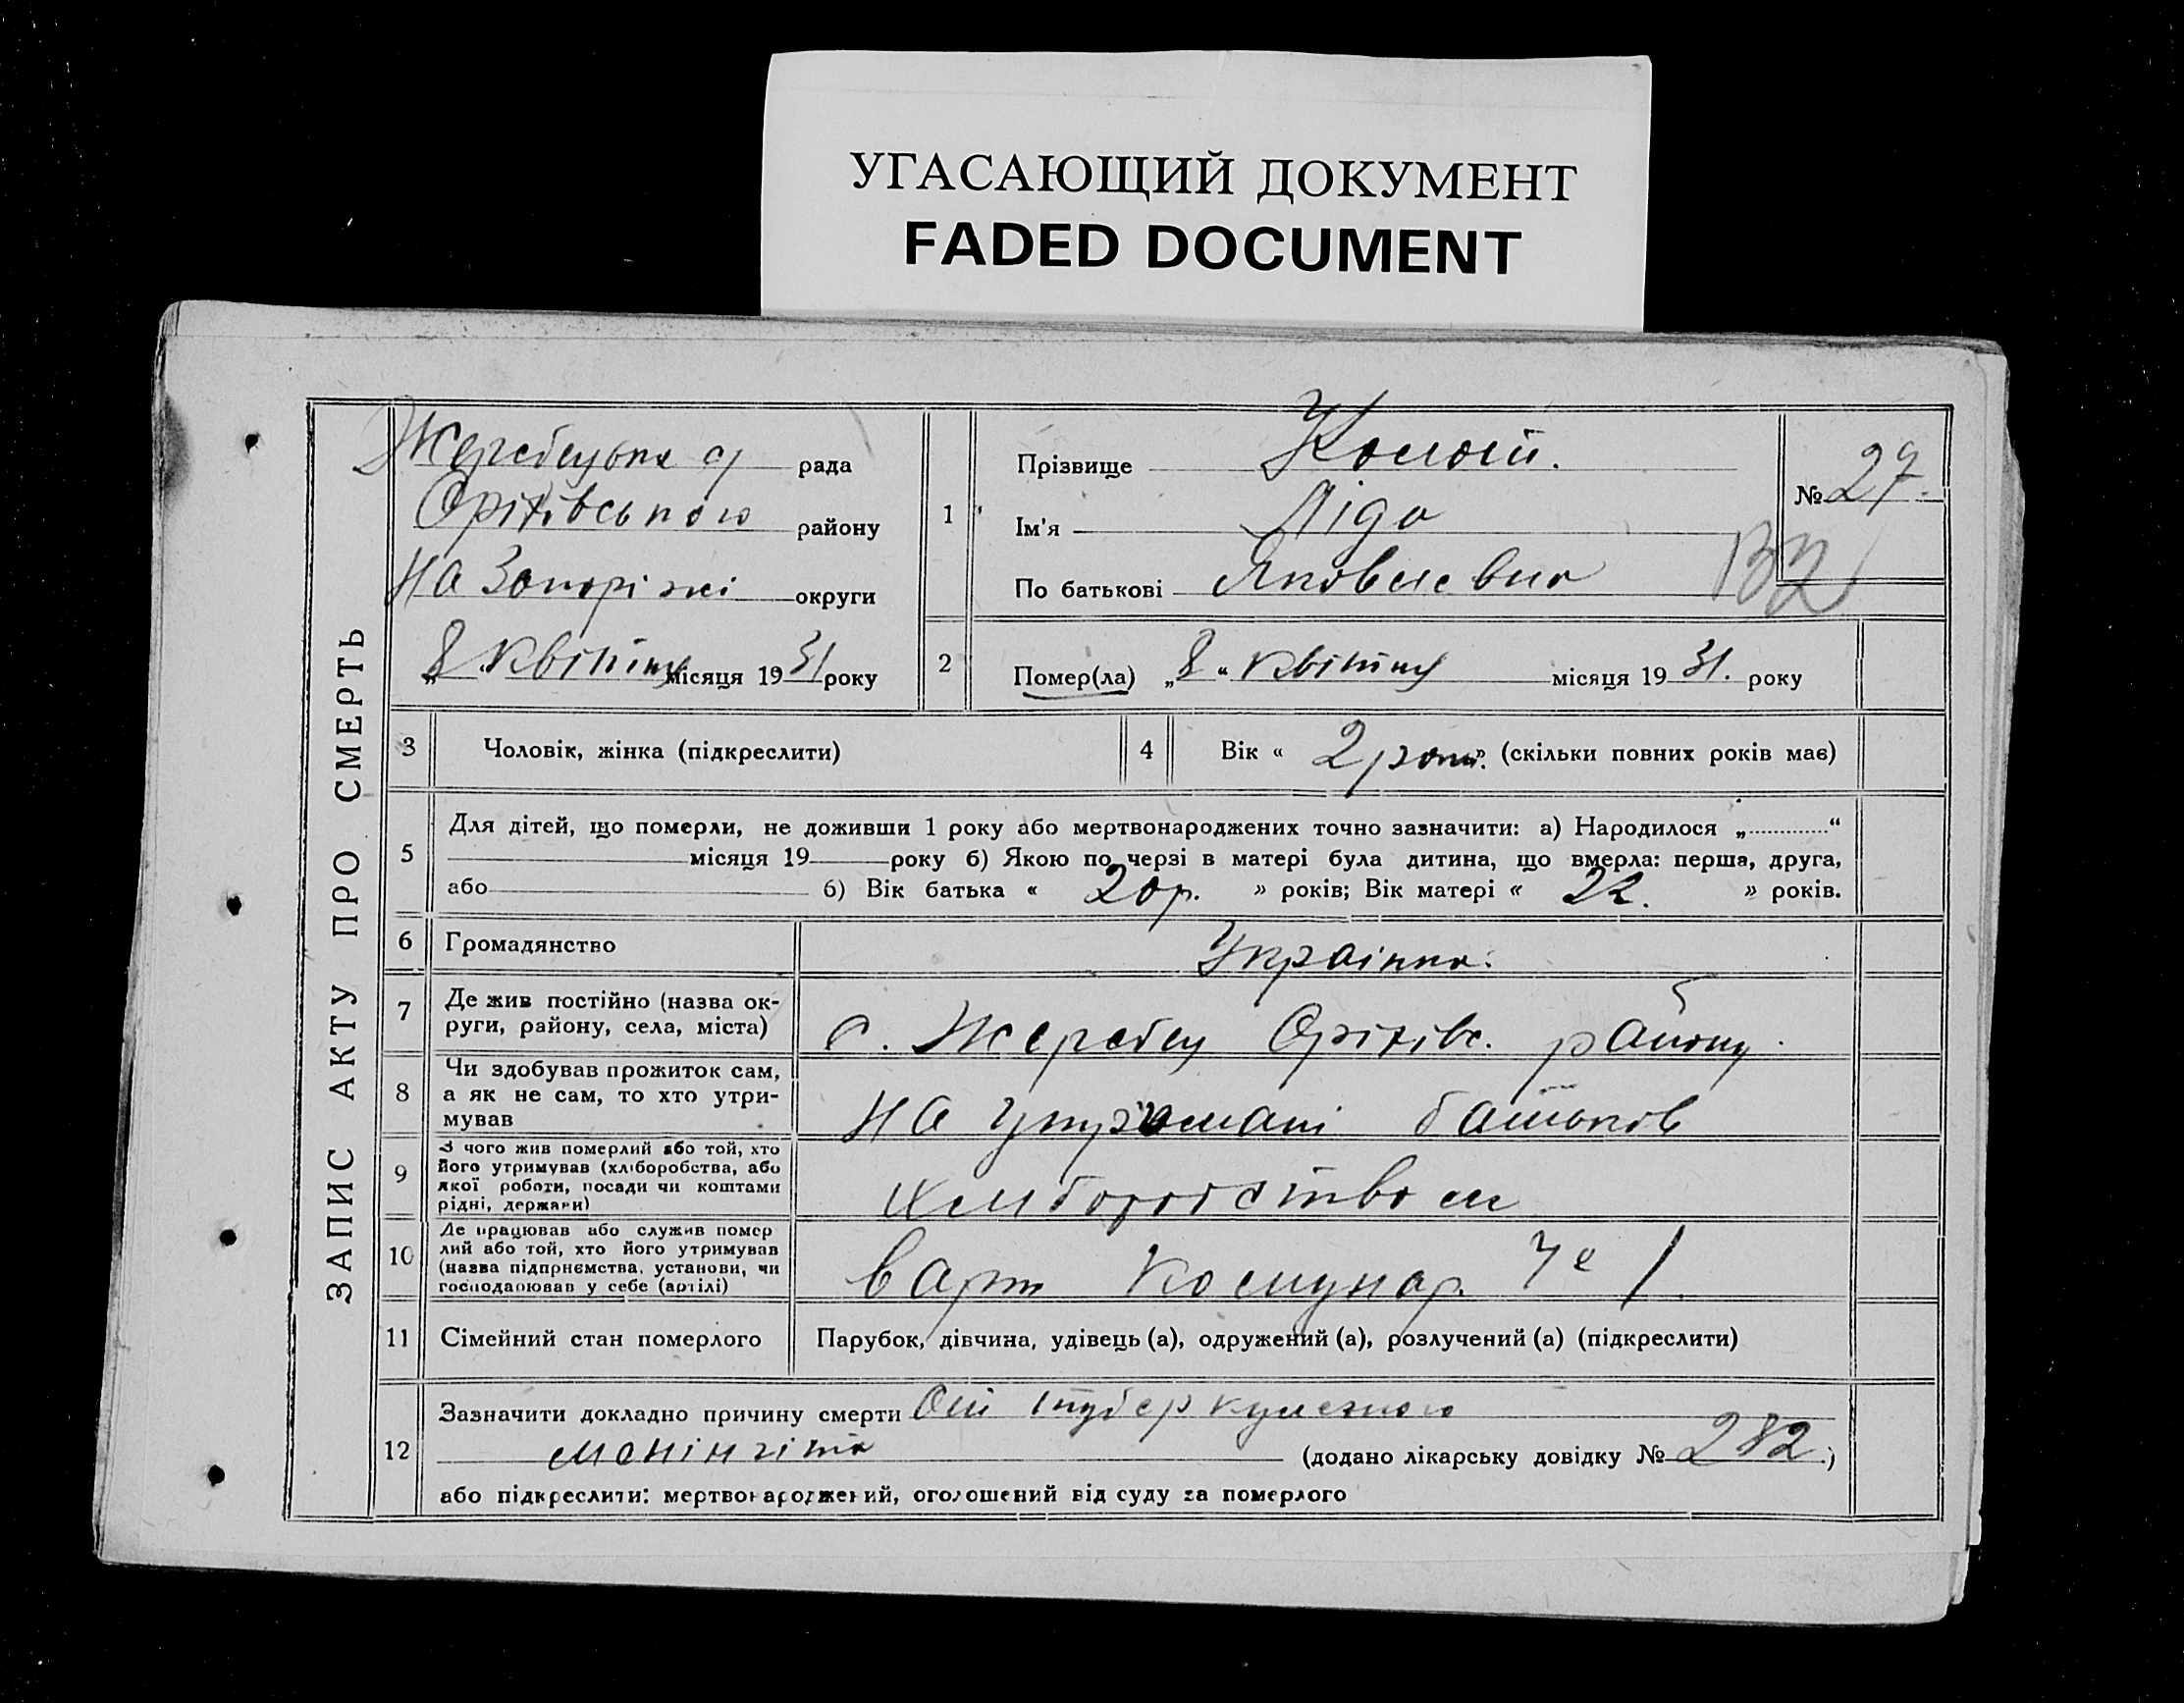 УГАСАЮЩИЙ ДОКУМЕНТ
FADED DOCUMENT
ЗАПИС АКТУ ПРО СМЕРТЬ
Жеребецька с/ рада
Оріхівського району
на Запоріжжі округи
„8“ квітня місяця 1931 року
1
Прізвище
Ім'я Ліда
По батькові Яковлевна
№ 27.
2
Помер(ла) „8“ квітня місяця 1931. року
3 Чоловік, жінка (підкреслити)
4 Вік « 2 роки » (скільки повних років має)
5 Для дітей, що померли, не доживши 1 року або мертвонароджених точно зазначити: а) Народилося „ “
місяця 19 року б) Якою по черзі в матері була дитина, що вмерла: перша, друга,
або б) Вік батька « 20 р. » років; Вік матері « 22. » років.
6 Громадянство Українка.
7 Де жив постійно (назва округи, району, села, міста) с. Жеребец Оріхівс. району.
8 Чи здобував прожиток сам, а як не сам, то хто утримував на утримані батьків
9 З чого жив померлий або той, хто його утримував (хліборобства, або якої роботи, посади чи коштами рідні, держави) хліборобством
10 Де працював або служив померлий або той, хто його утримував (назва підприємства, установи, чи господарював у себе (артілі) в арт Комунар. 1
11 Сімейний стан померлого Парубок, дівчина, удівець (а), одружений (а), розлучений (а) (підкреслити)
12 Зазначити докладно причину смерти От туберкулезного
менінгіта (додано лікарську довідку № 282.)
або підкреслити: мертвонароджений, оголошений від суду за померлого